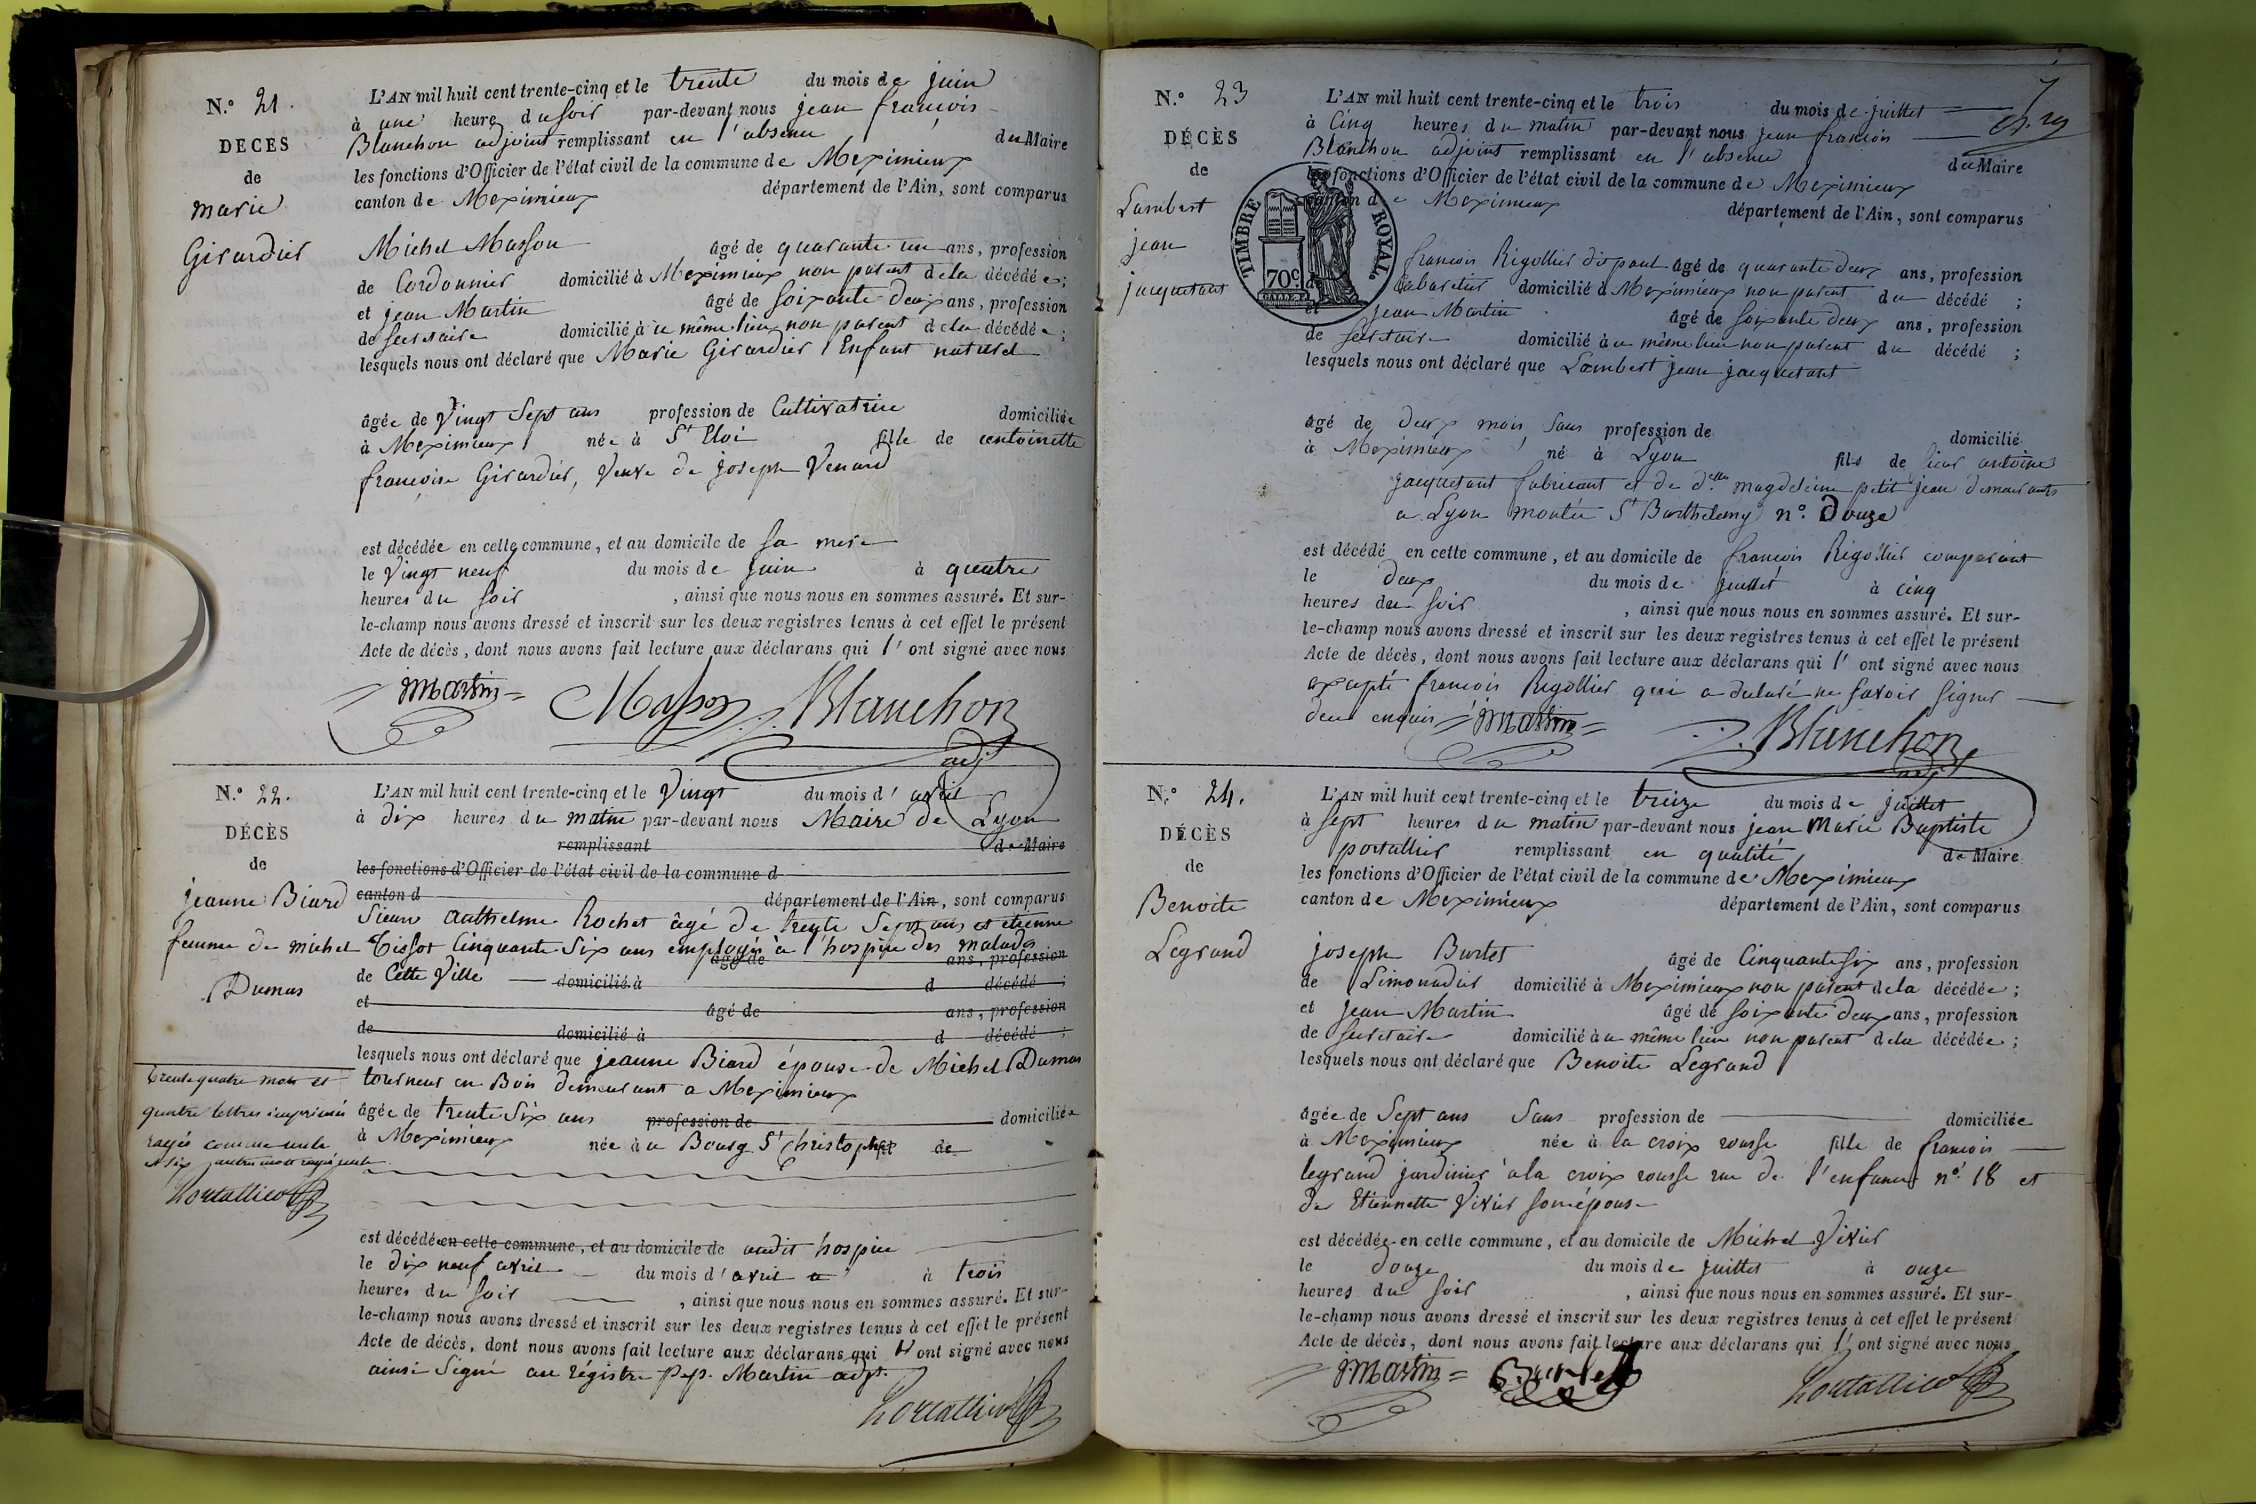 N.º 21.
DÉCÈS
de
Marie
Girardier
L'AN mil huit cent trente-cinq et le trente du mois de juin
à une heure du soir par-devant nous jean françois
Blanchon adjoint remplissant en l'absence du Maire
les fonctions d'Officier de l'état civil de la commune de Meximieux
canton de Meximieux département de l'Ain, sont comparus
Michel Masson âgé de quarante un ans, profession
de Cordonnier domicilié à Meximieux non parent de la décédée;
et jean Martin âgé de soixante deux ans, profession
de secretaire domicilié à u même lieu non parent de la décédée;
lesquels nous ont déclaré que Marie Girardier Enfant naturel
âgée de Vingt Sept ans profession de Cultivatrice domiciliée
à Meximieux née à St Eloi fille de antoinette
françoise Girardier, Veuve de joseph Venard
est décédée en cette commune, et au domicile de sa mere
le Vingt neuf du mois de juin à quatre
heures du soir, ainsi que nous nous en sommes assuré. Et sur-
le-champ nous avons dressé et inscrit sur les deux registres tenus à cet effet le présent
Acte de décès, dont nous avons fait lecture aux déclarans qui l'ont signé avec nous
Martin Masson Blanchon
adjt
N.º 22.
DÉCÈS
de
jeanne Biard
femme de michel
Dumas
L'AN mil huit cent trente-cinq et le Vingt du mois d'avril
à dix heures du matin par-devant nous Maire de Lyon
remplissant de Maire
les fonctions d'Officier de l'état civil de la commune d
canton d département de l'Ain, sont comparus
Sieurs anthelme Rochet âgé de trente Sept ans et etienne
Tissot Cinquante Six ans employés à l'hospice des malades
âgé de ans, profession
de Cette Ville domicilié à d décédé ;
et âgé de ans, profession
de domicilié à d décédé ;
lesquels nous ont déclaré que jeanne Biard épouse de Michel Dumas
tourneur en Bois demeurant a Meximieux
âgée de trente Six ans profession de domiciliée
à Meximieux née à u Bourg St Christophe de
Trente quatre mots et
quatre lettres imprimés
rayés comme nuls
et six autres mots rayés nuls
Portallier
est décédée en cette commune, et au domicile de audit hospice
le dix neuf avril du mois d'avril à trois
heures du soir, ainsi que nous nous en sommes assuré. Et sur-
le-champ nous avons dressé et inscrit sur les deux registres tenus à cet effet le présent
Acte de décès, dont nous avons fait lecture aux déclarans qui l'ont signé avec nous
ainsi Signé au régistre Martin adjt.
Portallier
N.º 23
DÉCÈS
de
Lambert
jean
jacquetant
TIMBRE ROYAL
70 c.
L'AN mil huit cent trente-cinq et le trois du mois de juillet
à Cinq heures du matin par-devant nous jean françois
Blanchon adjoint remplissant en l'absence du Maire
les fonctions d'Officier de l'état civil de la commune de Meximieux
canton de Meximieux département de l'Ain, sont comparus
françois Rigollier âgé de quarante deux ans, profession
de Cabaretier domicilié à Meximieux non parent du décédé ;
et jean Martin âgé de soixante deux ans, profession
de secretaire domicilié à u même lieu non parent du décédé ;
lesquels nous ont déclaré que Lambert jean jacquetant
âgé de deux mois Sans profession de domicilié
à Meximieux né à Lyon fils de sieur antoine
jacquetant fabricant et de delle magdeleine petit jean demeurants
a Lyon montée St Barthelemy n.º Douze
est décédé en cette commune, et au domicile de françois Rigollier comparant
le deux du mois de juillet à cinq
heures du soir, ainsi que nous nous en sommes assuré. Et sur-
le-champ nous avons dressé et inscrit sur les deux registres tenus à cet effet le présent
Acte de décès, dont nous avons fait lecture aux déclarans qui l'ont signé avec nous
excepté françois Rigollier qui a declaré ne savoir signer
de ce enquis Martin Blanchon
adjt
N.º 24.
DÉCÈS
de
Benoite
Legrand
L'AN mil huit cent trente-cinq et le treize du mois de juillet
à sept heures du matin par-devant nous jean Marie Baptiste
portallier remplissant en qualité de Maire
les fonctions d'Officier de l'état civil de la commune de Meximieux
canton de Meximieux département de l'Ain, sont comparus
joseph Burlet âgé de Cinquante six ans, profession
de Limonadier domicilié à Meximieux non parent de la décédée ;
et jean Martin âgé de soixante deux ans, profession
de secretaire domicilié à u même lieu non parent de la décédée ;
lesquels nous ont déclaré que Benoite Legrand
âgée de Sept ans Sans profession de domiciliée
à Meximieux née à la croix rousse fille de françois
legrand jardinier à la croix rousse rue de l'enfance n.º 18 et
de Etiennette Vivier son épouse
est décédée en cette commune, et au domicile de Michel Vivier
le douze du mois de juillet à onze
heures du soir, ainsi que nous nous en sommes assuré. Et sur-
le-champ nous avons dressé et inscrit sur les deux registres tenus à cet effet le présent
Acte de décès, dont nous avons fait lecture aux déclarans qui l'ont signé avec nous
Martin Burlet Portallier